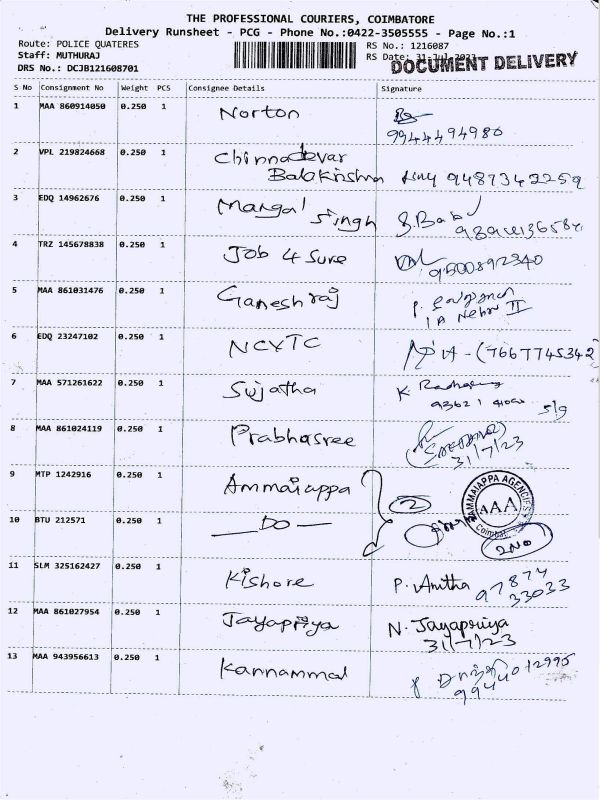 THE PROFESSIONAL COURIERS, COIMBATORE
Delivery Runsheet - PCG - Phone No.:0422-3505555 - Page No.:1
Route: POLICE QUATERES RS No.: 1216087
Staff: MUTHURAJ RS Date: 31-Jul-2023
DRS No.: DCJB121608701 DOCUMENT DELIVERY
S No Consignment No Weight PCS Consignee Details Signature
1 MAA 860914050 0.250 1 Norton
9944494980
2 VPL 219824668 0.250 1 Chinnadevar
Balakrishna 9487342259
3 EDQ 14962676 0.250 1 Mangal Singh S. Babu
4 TRZ 145678838 0.250 1 Job 4 Sure
9500892340
5 MAA 861031476 0.250 1 Ganeshraj
1A Nehru II
6 EDQ 23247102 0.250 1 NCYTC (7667745342
7 MAA 571261622 0.250 1 Sujatha K.
S/g
8 MAA 861024119 0.250 1 Prabhasree
31/7/23
9 MTP 1242916 0.250 1 Ammaiappa 2
AMMAIAPPA AGENCIES
AAA
Coimbat
10 BTU 212571 0.250 1 — DO —
2 NO
11 SLM 325162427 0.250 1 Kishore P. Anitha 97874
33033
12 MAA 861027954 0.250 1 Jayapriya N. Jayapriya
31/7/23
13 MAA 943956613 0.250 1 Kannammal